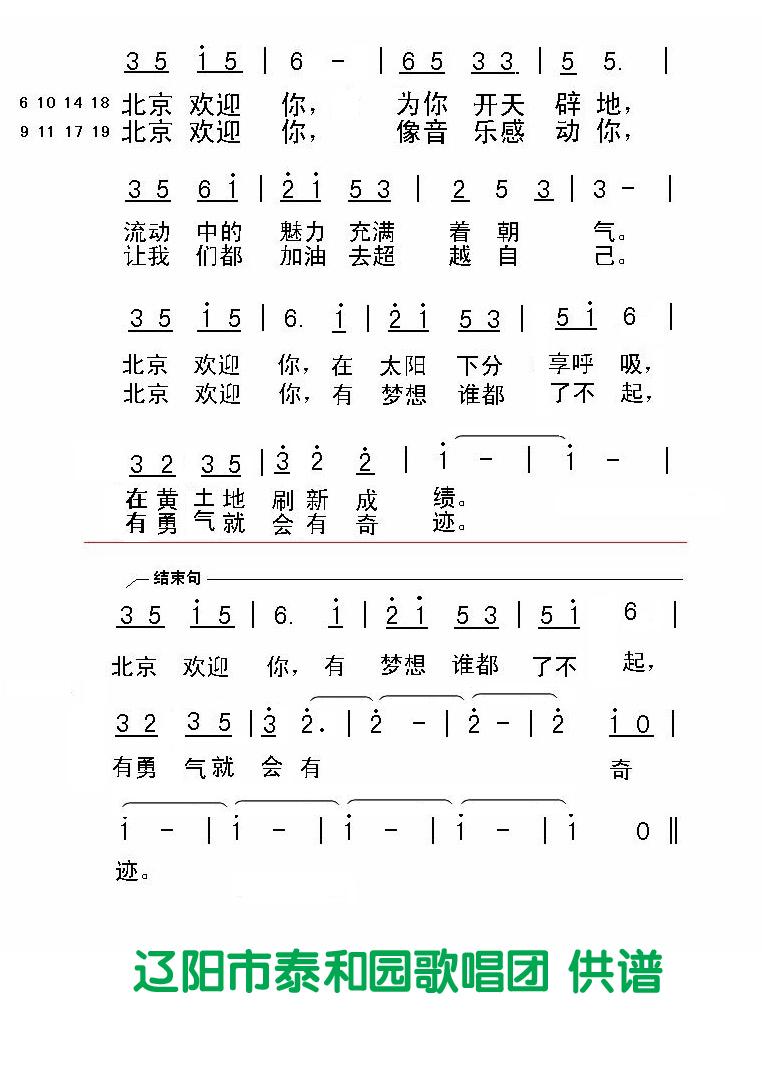 3 5 i 5 | 6 - | 6 5 3 3 | 5 5. |
6 10 14 18 北京 欢迎 你， 为你 开天 辟 地，
9 11 17 19 北京 欢迎 你， 像音 乐感 动 你，
3 5 6 i | 2̇ i 5 3 | 2 5 3 | 3 - |
流动 中的 魅力 充满 着 朝 气。
让我 们都 加油 去超 越 自 己。
3 5 i 5 | 6. i | 2̇ i 5 3 | 5 i 6 |
北京 欢迎 你，在 太阳 下分 享呼 吸，
北京 欢迎 你，有 梦想 谁都 了不 起，
3 2 3 5 | 3̇ 2̇ 2̇ | i - | i - |
在黄 土地 刷新 成 绩。
有勇 气就 会有 奇 迹。
结束句
3 5 i 5 | 6. i | 2̇ i 5 3 | 5 i 6 |
北京 欢迎 你，有 梦想 谁都 了不 起，
3 2 3 5 | 3̇ 2̇. | 2̇ - | 2̇ - | 2̇ i 0 |
有勇 气就 会 有 奇
i - | i - | i - | i - | i 0 ‖
迹。
辽阳市泰和园歌唱团 供谱